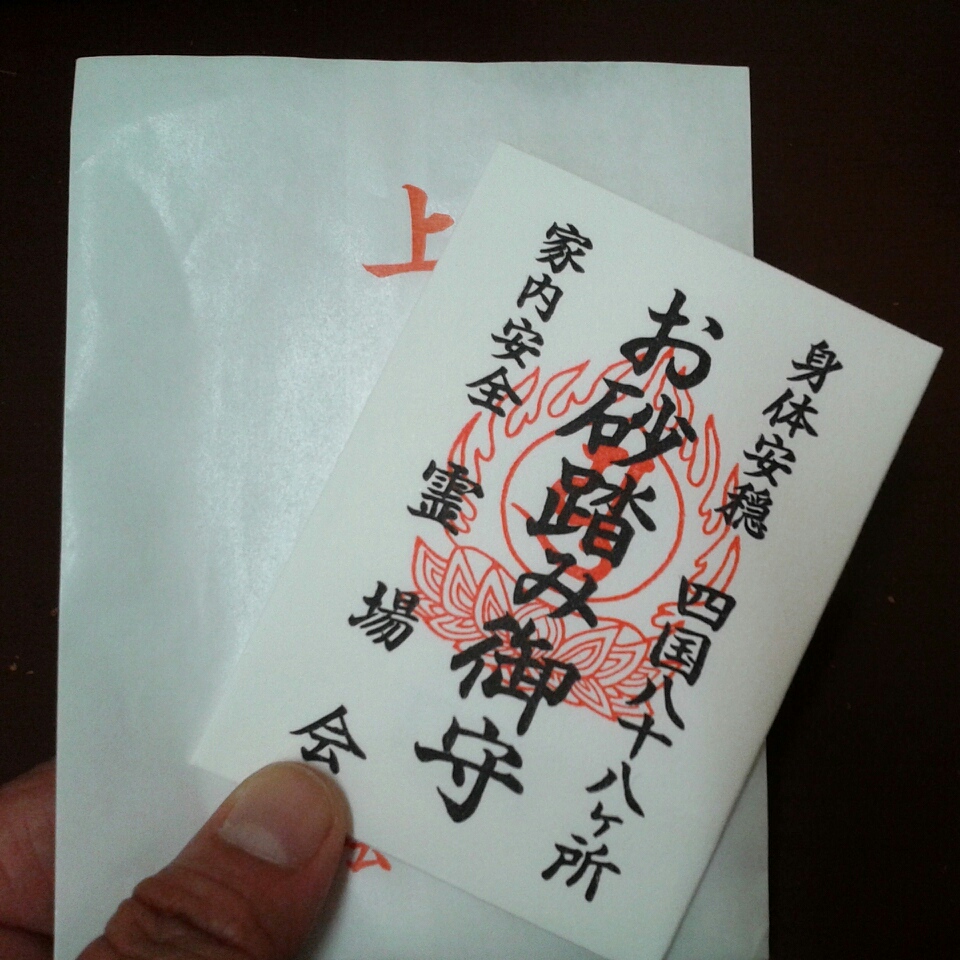 身体安穏
四国八十八ヶ所
お砂踏み御守
家内安全
霊場会
上